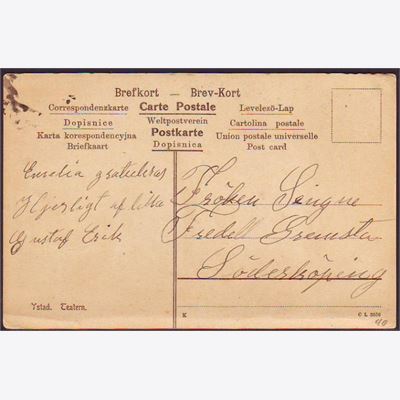 Brefkort — Brev-Kort
Correspondenzkarte Carte Postale Levelező-Lap
Dopisnice Weltpostverein Cartolina postale
Karta korespondencyjna Postkarte Union postale universelle
Briefkaart Dopisnica Post card
Hjertligt af lille
Gustaf Erik
Fröken Singne
Fredell Gremsta
Söderköping
Ystad. Teatern.
K
C L 3506